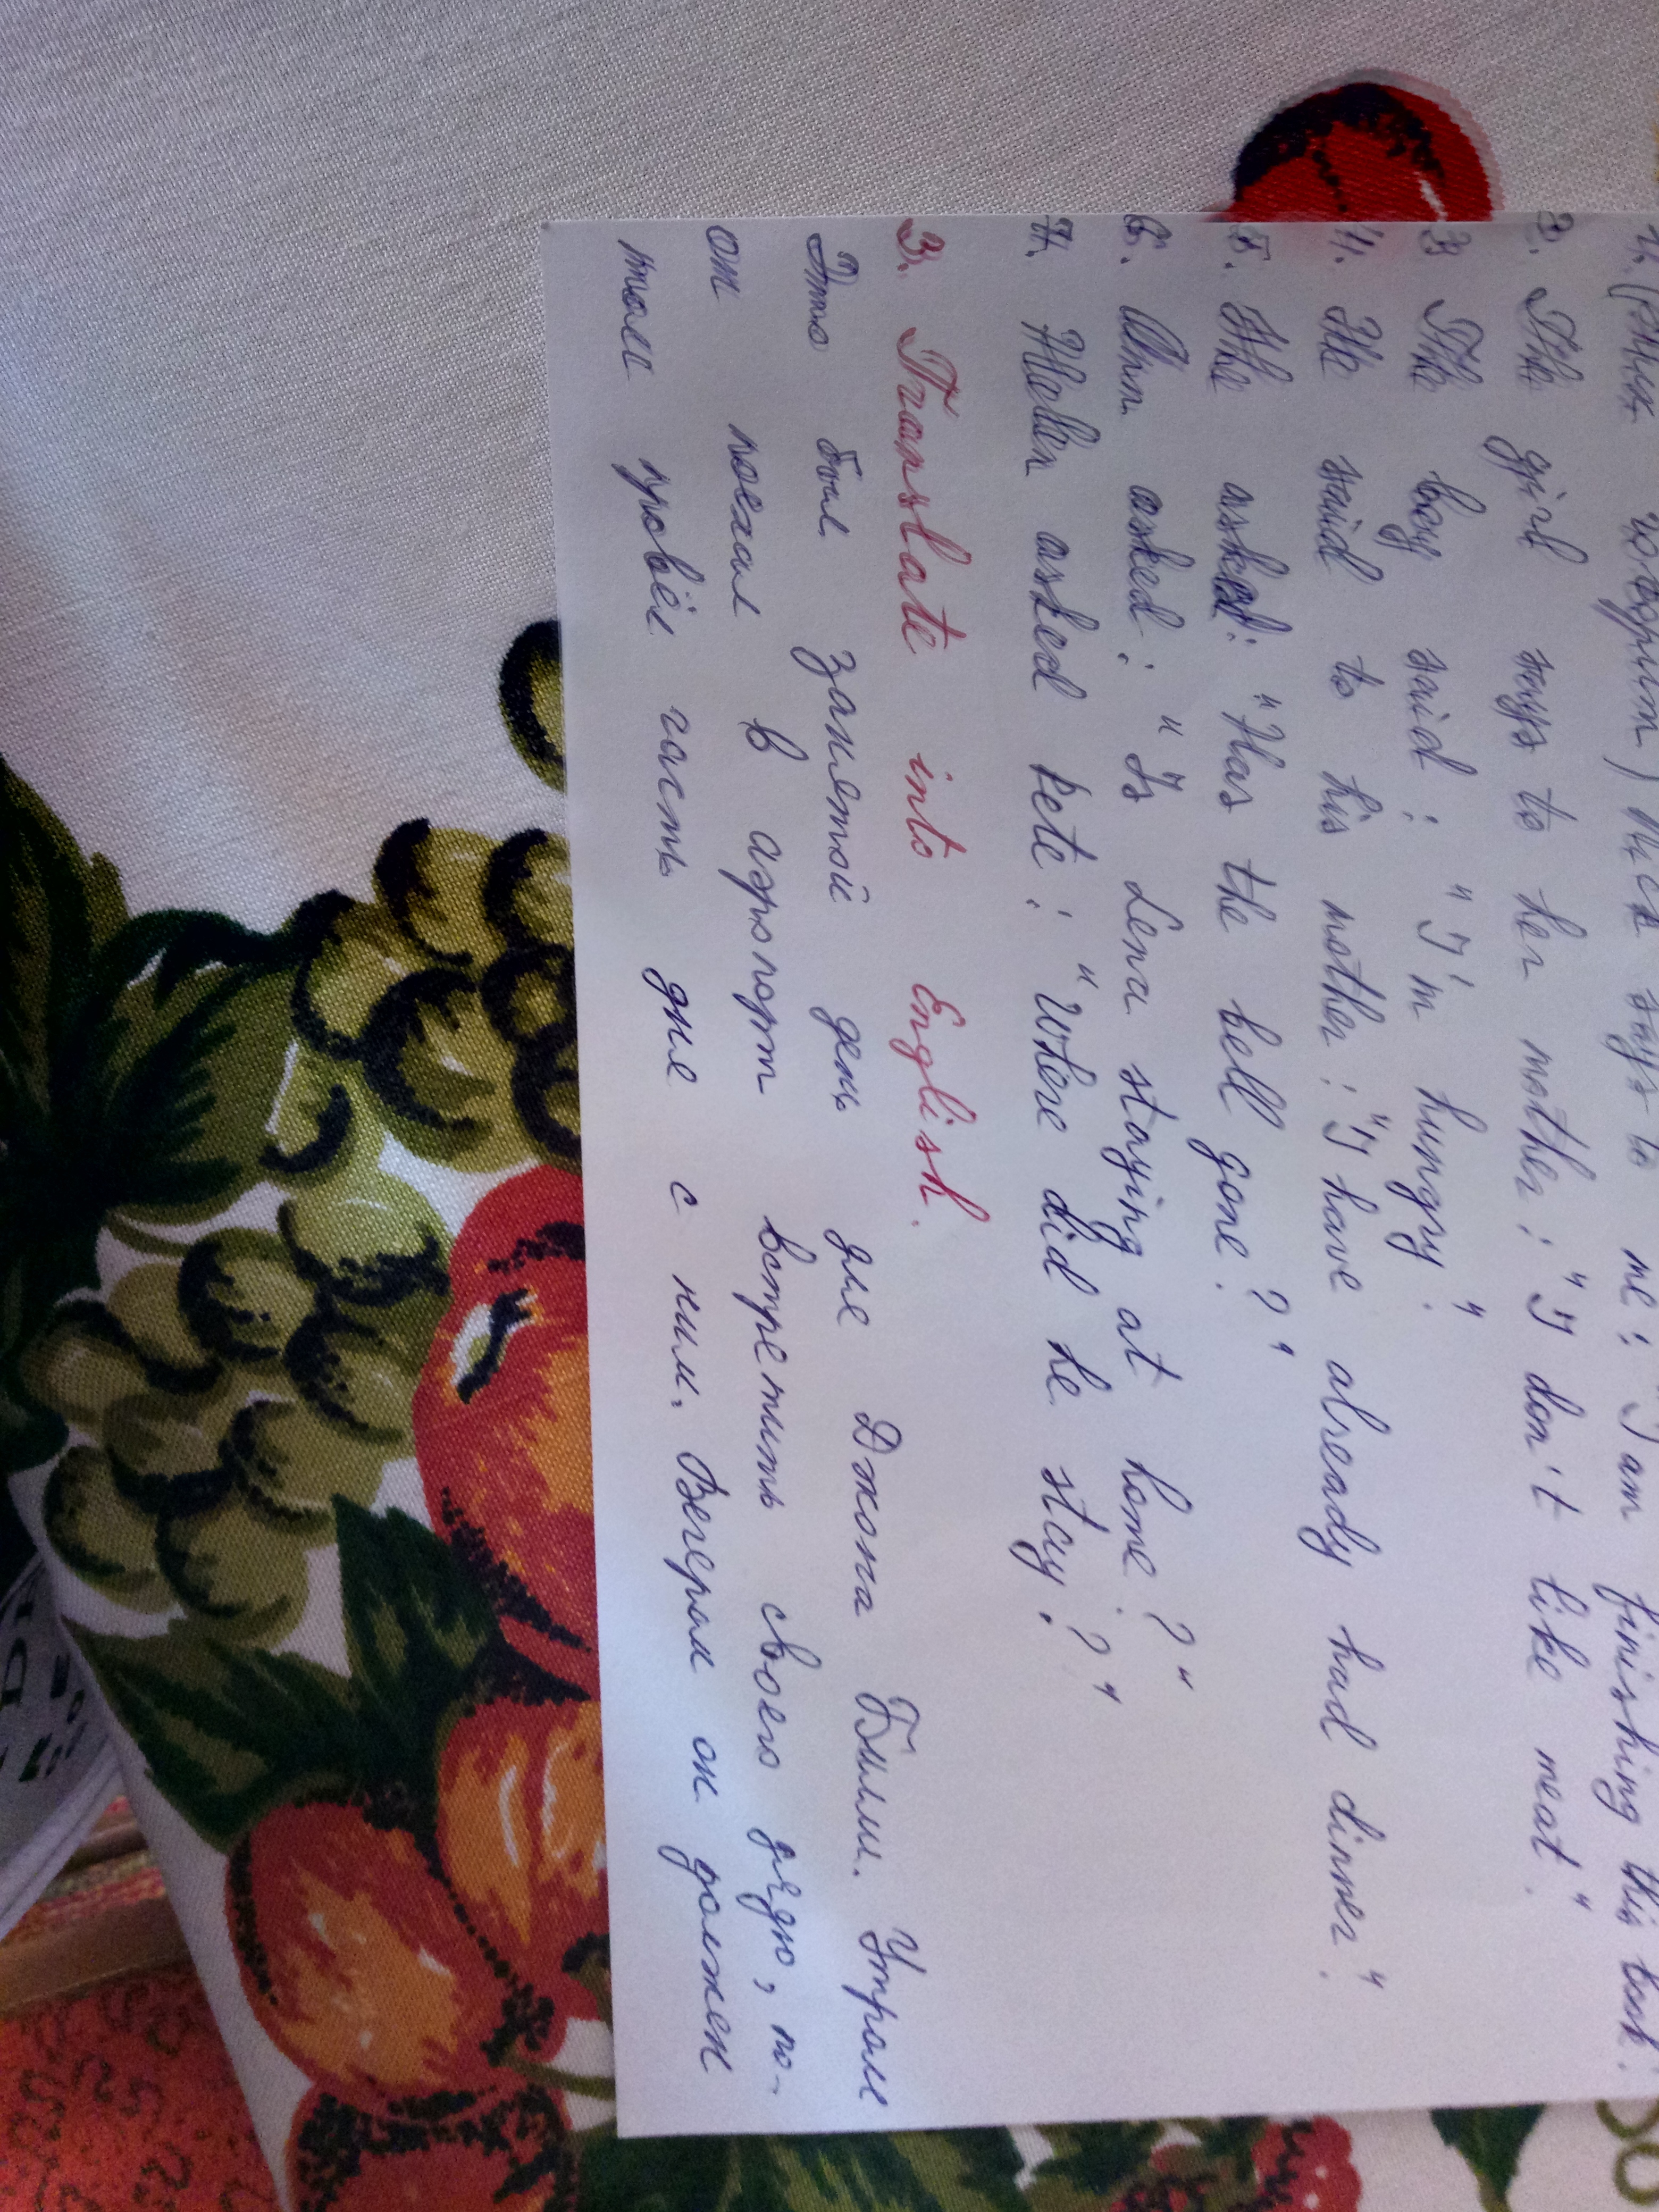 говорит) Nick says to me: "I am finishing this book.
2. The girl says to her mother: "I don't like meat."
3 The boy said: "I'm hungry."
4. He said to his mother: "I have already had dinner."
5. He asked: "Has the bell gone?"
6. Ann asked: "Is Lena staying at home?"
7. Helen asked Pete: "Where did he stay?"
3. Translate into English.
Это был занятой день для Джона Билли. Утром
он поехал в аэропорт встретить своего дядю, по-
том провёл часть дня с ним. Вечером он должен